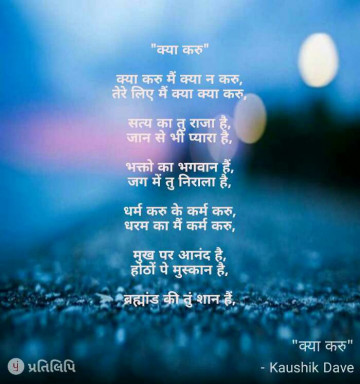 "क्या करु"
क्या करु मैं क्या न करु,
तेरे लिए मैं क्या क्या करु,
सत्य का तु राजा है,
जान से भी प्यारा है,
भक्तो का भगवान हैं,
जग में तु निराला है,
धर्म करु के कर्म करु,
धरम का मैं कर्म करु,
मुख पर आनंद है,
होंठों पे मुस्कान है,
ब्रह्मांड की तुं शान हैं,
"क्या करु"
- Kaushik Dave
પ્રતિલિપિ